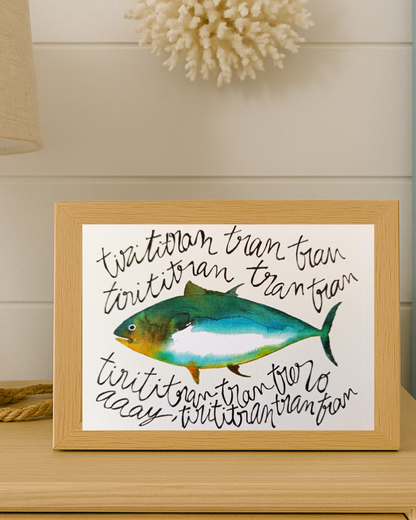 tirititran tran tran
tirititran tran tran
tirititran tran trero
aaaay, tirititran tran tran